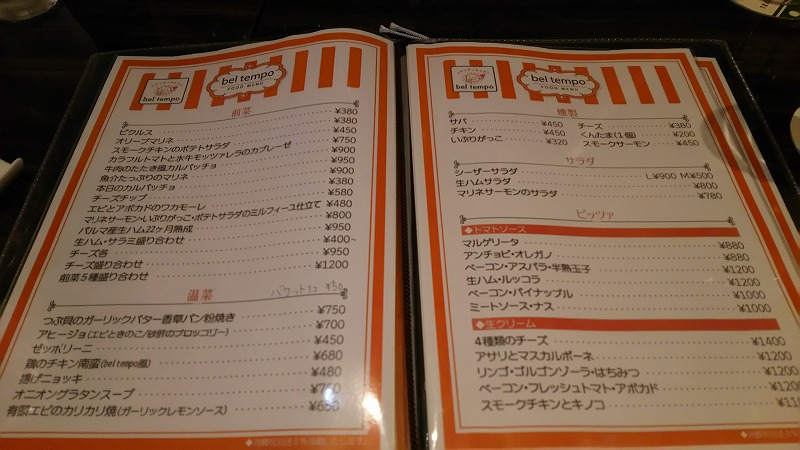 bel tempo
bel tempo
FOOD MENU
前菜
ピクルス ¥380
オリーブマリネ ¥380
スモークチキンのポテトサラダ ¥450
カラフルトマトと水牛モッツァレラのカプレーゼ ¥750
牛肉のたたき風カルパッチョ ¥900
魚介たっぷりのマリネ ¥950
本日のカルパッチョ ¥900
チーズチップ ¥380
エビとアボカドのワカモーレ ¥580
マリネサーモン・いぶりがっこ・ポテトサラダのミルフィーユ仕立て ¥480
パルマ産生ハム22ヶ月熟成 ¥800
生ハム・サラミ盛り合わせ ¥950
チーズ各 ¥400~
チーズ盛り合わせ ¥950
前菜5種盛り合わせ ¥1200
温菜
バケット1コ ¥50
つぶ貝のガーリックバター香草パン粉焼き ¥750
アヒージョ(エビときのこ/砂肝のブロッコリー) ¥700
ゼッポリーニ ¥450
鶏のチキン南蛮(bel tempo風) ¥680
揚げニョッキ ¥480
オニオングラタンスープ ¥750
有頭エビのカリカリ焼(ガーリックレモンソース) ¥650
bel tempo
bel tempo
FOOD MENU
燻製
サバ ¥450 チーズ ¥380
チキン ¥450 くんたま(1個) ¥200
いぶりがっこ ¥320 スモークサーモン ¥450
サラダ
シーザーサラダ L¥900 M¥500
生ハムサラダ ¥800
マリネサーモンのサラダ ¥780
ピッツァ
◆トマトソース
マルゲリータ ¥880
アンチョビ・オレガノ ¥880
ベーコン・アスパラ・半熟玉子 ¥1200
生ハム・ルッコラ ¥1200
ベーコン・パイナップル ¥1000
ミートソース・ナス ¥1000
◆生クリーム
4種類のチーズ ¥1400
アサリとマスカルポーネ ¥1200
リンゴ・ゴルゴンゾーラ・はちみつ ¥1200
ベーコン・フレッシュトマト・アボカド ¥1200
スモークチキンとキノコ